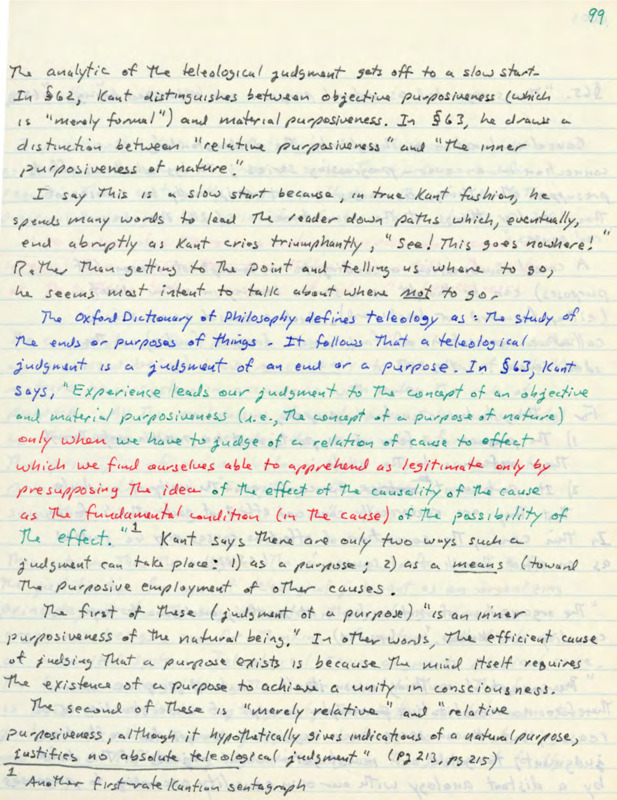 99
The analytic of the teleological judgment gets off to a slow start.
In §62, Kant distinguishes between objective purposiveness (which
is "merely formal") and material purposiveness. In §63, he draws a
distinction between "relative purposiveness" and "the inner
purposiveness of nature."
I say this is a slow start because, in true Kant fashion, he
spends many words to lead the reader down paths which, eventually,
end abruptly as Kant cries triumphantly, "See! This goes nowhere!"
Rather than getting to the point and telling us where to go,
he seems most intent to talk about where not to go.
The Oxford Dictionary of Philosophy defines teleology as: The study of
the ends or purposes of things. It follows that a teleological
judgment is a judgment of an end or a purpose. In §63, Kant
says, "Experience leads our judgment to the concept of an objective
and material purposiveness (i.e., the concept of a purpose of nature)
only when we have to judge of a relation of cause to effect
which we find ourselves able to apprehend as legitimate only by
presupposing the idea of the effect of the causality of the cause
as the fundamental condition (in the cause) of the possibility of
the effect."1 Kant says there are only two ways such a
judgment can take place: 1) as a purpose; 2) as a means (toward
the purposive employment of other causes.
The first of these (judgment of a purpose) "is an inner
purposiveness of the natural being." In other words, the efficient cause
of judging that a purpose exists is because the mind itself requires
the existence of a purpose to achieve a unity in consciousness.
The second of these is "merely relative" and "relative
purposiveness, although it hypothetically gives indications of a natural purpose,
justifies no absolute teleological judgment" (pg 213, pg 215)
1 Another first-rate Kantian sentagraph